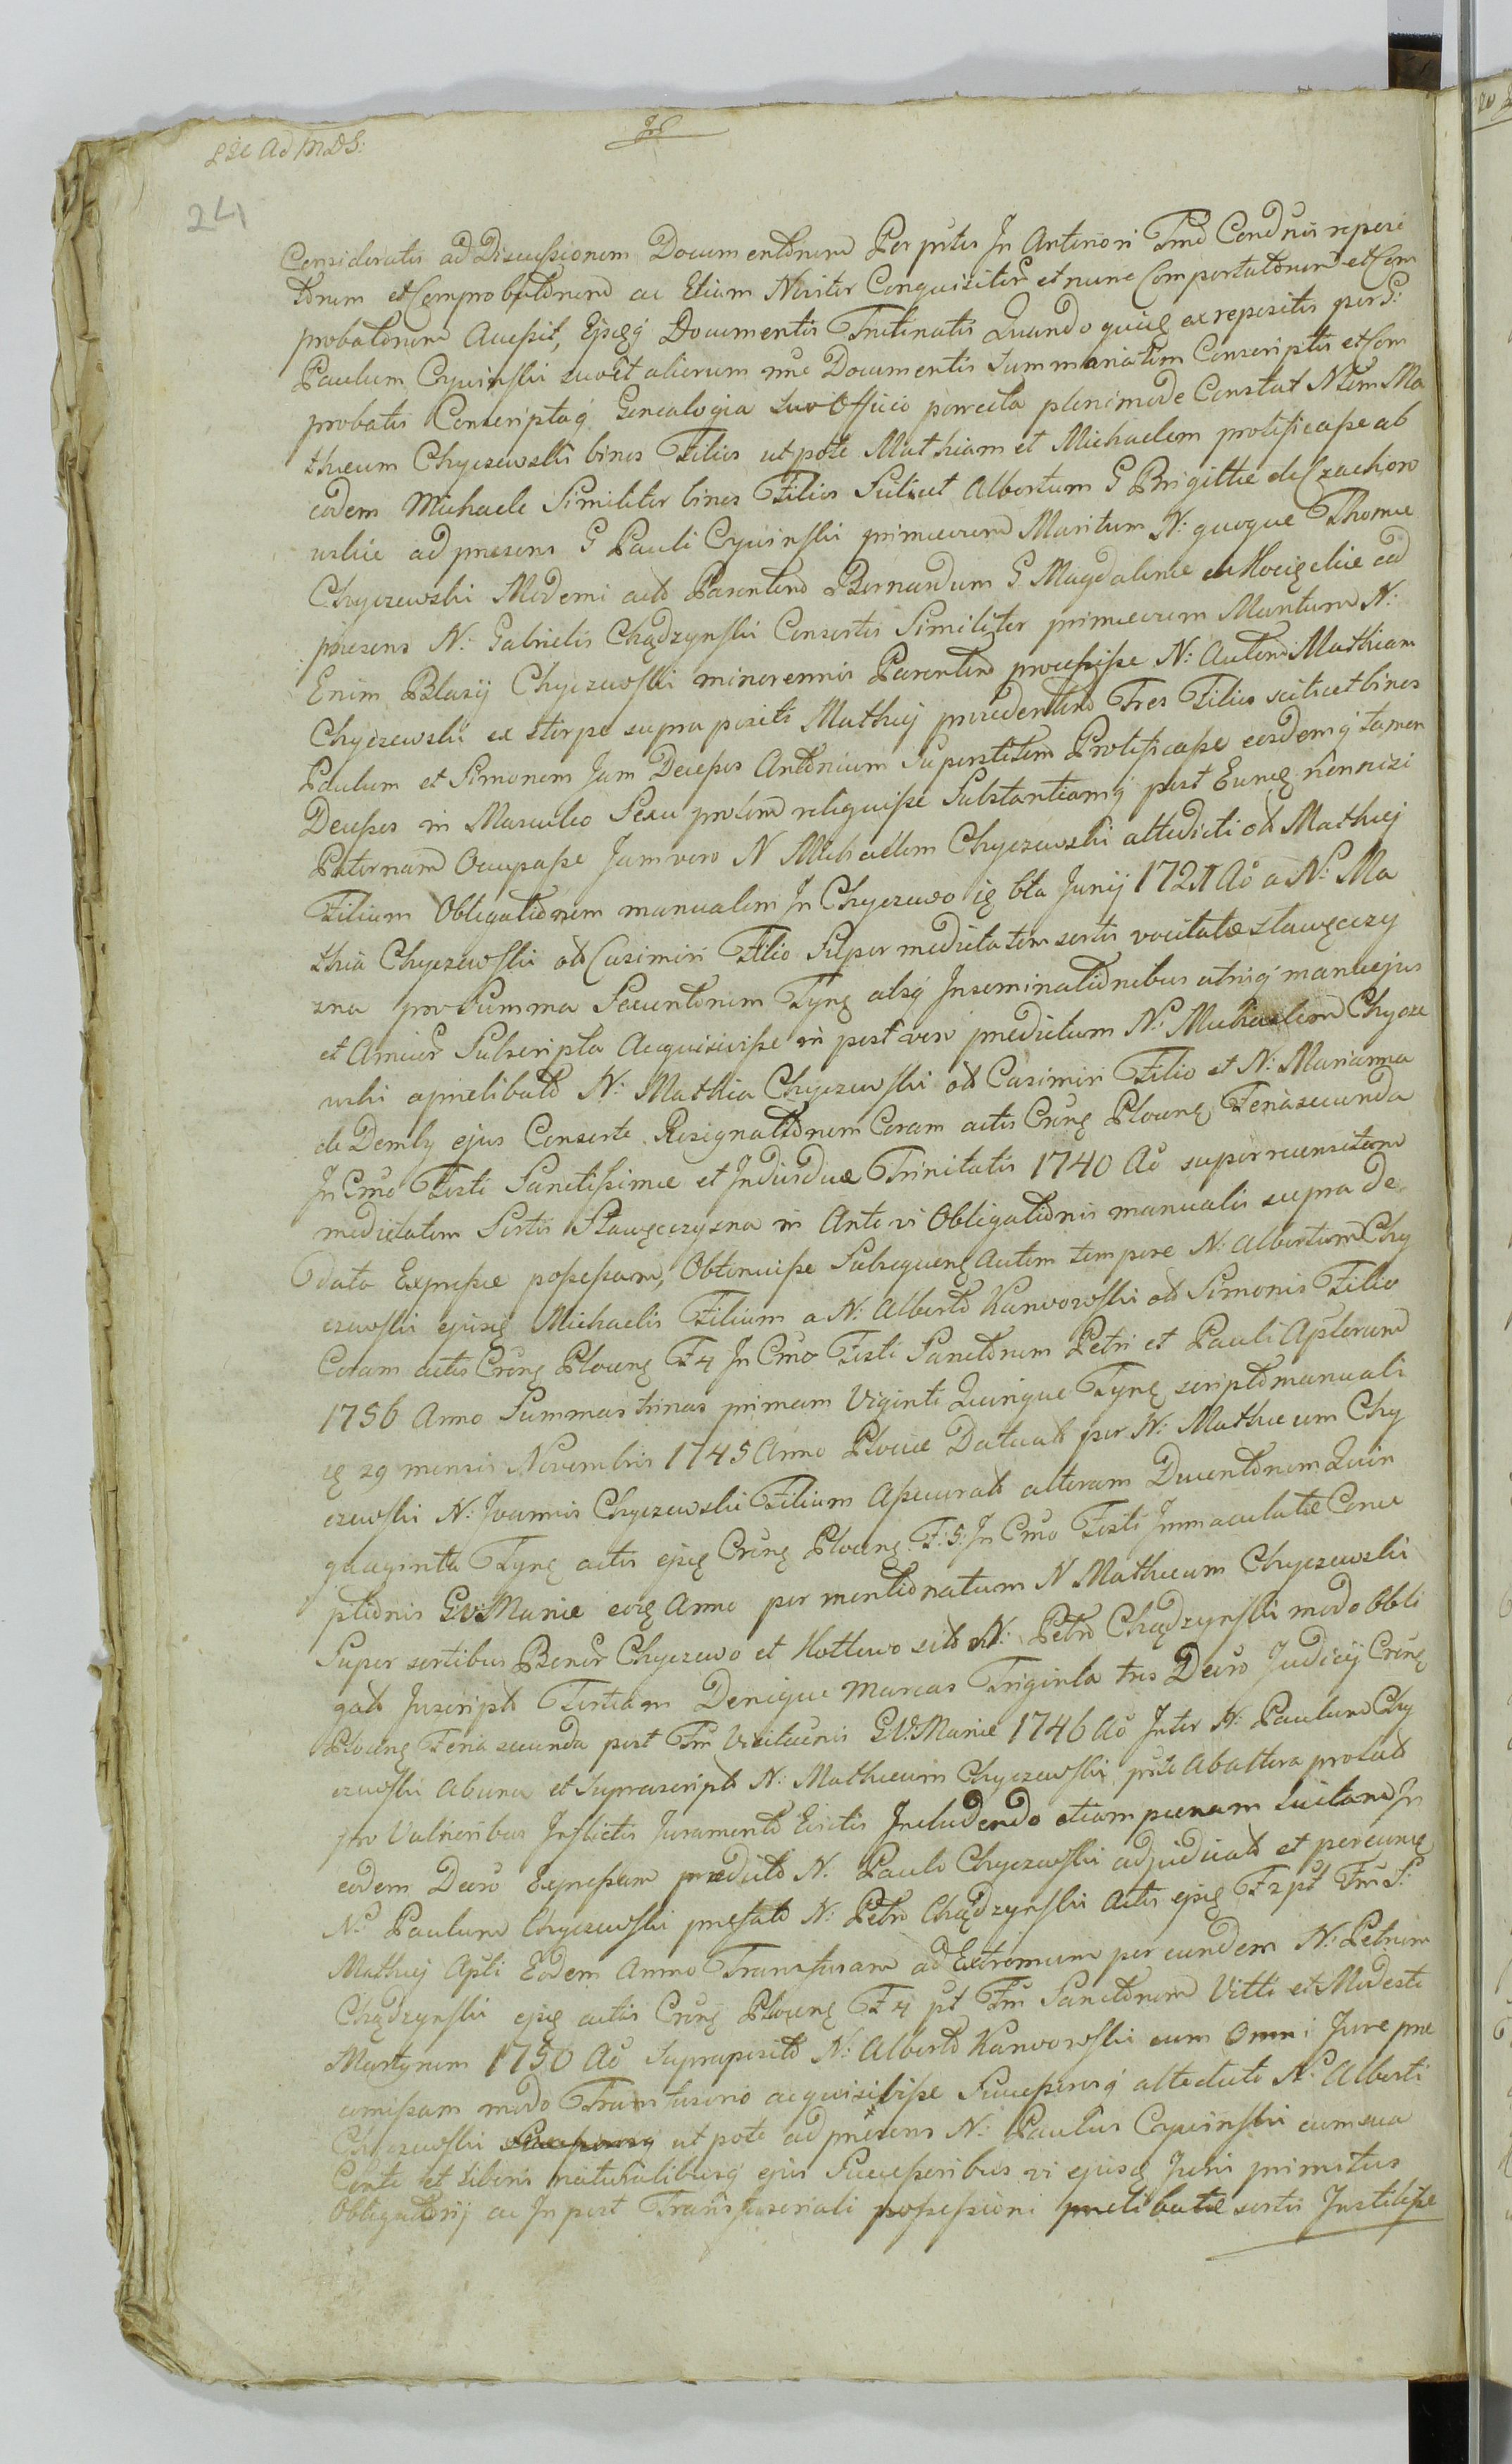 241
Consideratis ad Discussionem Documentorum Per prtes In Anteriori Tmo Condnii reposi
torum et Comprobatorum ac Etiam Noviter Conquisitor et nunc Comportatorum et Com
probatorum Accessit, Ejsqȝ Documentis Trutinatis Quandoquidem ex repositis per G:
Paulum Cywinski suo et aliorum nne Documentis Summariatim Conscriptis et Com
probatis Conscriptaq Genealogia suo Officio porrecta plenimode Constat Nlem Ma
thæum Chyczewski binos Filios ut pote Mathiam et Michaelem prolificasse ab
eodem Michaele Similiter binos Filios Scilicet Albertum G Brigittæ de Czachoro
wskie ad præsens G Pauli Cywinski primævum Maritum N: quoque Thomæ
Chyczewski Moderni acto Parentem Bernardum G Magdalenæ de
præsens N: Gabrielis Chądzynski Consortis Similiter primævum Maritum N:
Enim Blasij Chyczewski minorennis Parentem processisse N: Autem Mathiam
Chyczewski ex stirpe supra positi Mathej procedentem Tres Filios scilicet binos
Paulum et Simonem Jam Decessos Antonium Superstitem Prolificasse eosdemq tamen
Decessos in Masculeo Sexu prolem reliquisse Substantiamq post Eund nonnisi
Paternam Occupasse Jam vero N Michaelem Chyczewski attedicti olim Mathej
Filium Obligationem manualem In Chyczewo 1721 Ao a N: Ma
thia Chyczewski olim Casimiri Filio Super medietatem sortis vocitatæ Stawęczy
zna pro Summa Secentorum Tyng absq Inseminationibus utriq manu ejus
et Amicor Subscripta Acquisivisse in post vero prædictum N: Michaelem Chycze
wski a prælibato N: Mathia Chyczewski olim Casimiri Filio et N: Marianna
de Demby ejus Consorte Resignationem Coram actis Crng Plocng Feria secunda
In Cmo Festi Sanctissimæ et Individuæ Trinitatis 1740 Ao super recensitam
medietatem Sortis Stawęczyzna in Ante vi Obligationis manualis supra de
data Expressæ possessam, Obtinuisse Subsequenq Autem tempore N: Albertum Chy
czewski ejusq Michaelis Filium a N: Alberto Karwowski olim Simonis Filio
Coram actis Crng Plocng F 4 In Cmo Festi Sanctorum Petri et Pauli Aplorum
1756 Anno Summas trinas primam Viginti Quinque Tyng scripto manuali
29 mensis Novembris 1745 Anno Plociæ Datuato per N: Mathæum Chy
czewski N: Joannis Chyczewski Filium Assecurato alteram Ducentorum Quin
quaginta Tyng actis ejsq Crng Plocng F: 5: In Cmo Festi Immaculatæ Conce
ptionis G:V: Mariæ Anno per mentionatum N Mathæum Chyczewski
Super sortibus Bonor Chyczewo et N: Petro Chądzynski modo Obli
gato Inscripto Tertiam Denique Marcas Triginta tres Decro Judicij Crng
Plocng Feria secunda post Tm Visitationis G:V: Mariæ 1746 Ao Inter N: Paulum Chy
czewski ab una et Suprascripto N: Mathæum Chyczewski prte ab altera prolato
pro Vulneribus Inflictis Juramento Includendo etiam pænam luitam In
eodem Decro Expressam prædicto N: Paulo Chyczewski adjudicato et per eund
N: Paulum Chyczewski præfato N: Petro Chądzynski Actis ejsq F 2 pt Fm S:
Mathej Apli Eodem Anno Transfusam ad Extremum per eundem N: Petrum
Chądzynski ejsq actis Crng Plocng F 4 pt Fm Sanctorum Vitti et Modesti
Martyrum 1750 Ao Supraposito N: Alberto Karwowski cum Omni Jure præ
amissam modo Transfusorio acquisivisse Successorisq attedicti N: Alberti
Chyczewski ut pote ad præsens N: Paulus Cywinski cum sua
Conte et liberis naturalibusq ejus Successoribus vi ejusq Juris primitus
Obligatorij ac In post Transfusionali possessioni prælibatæ sortis Institisse